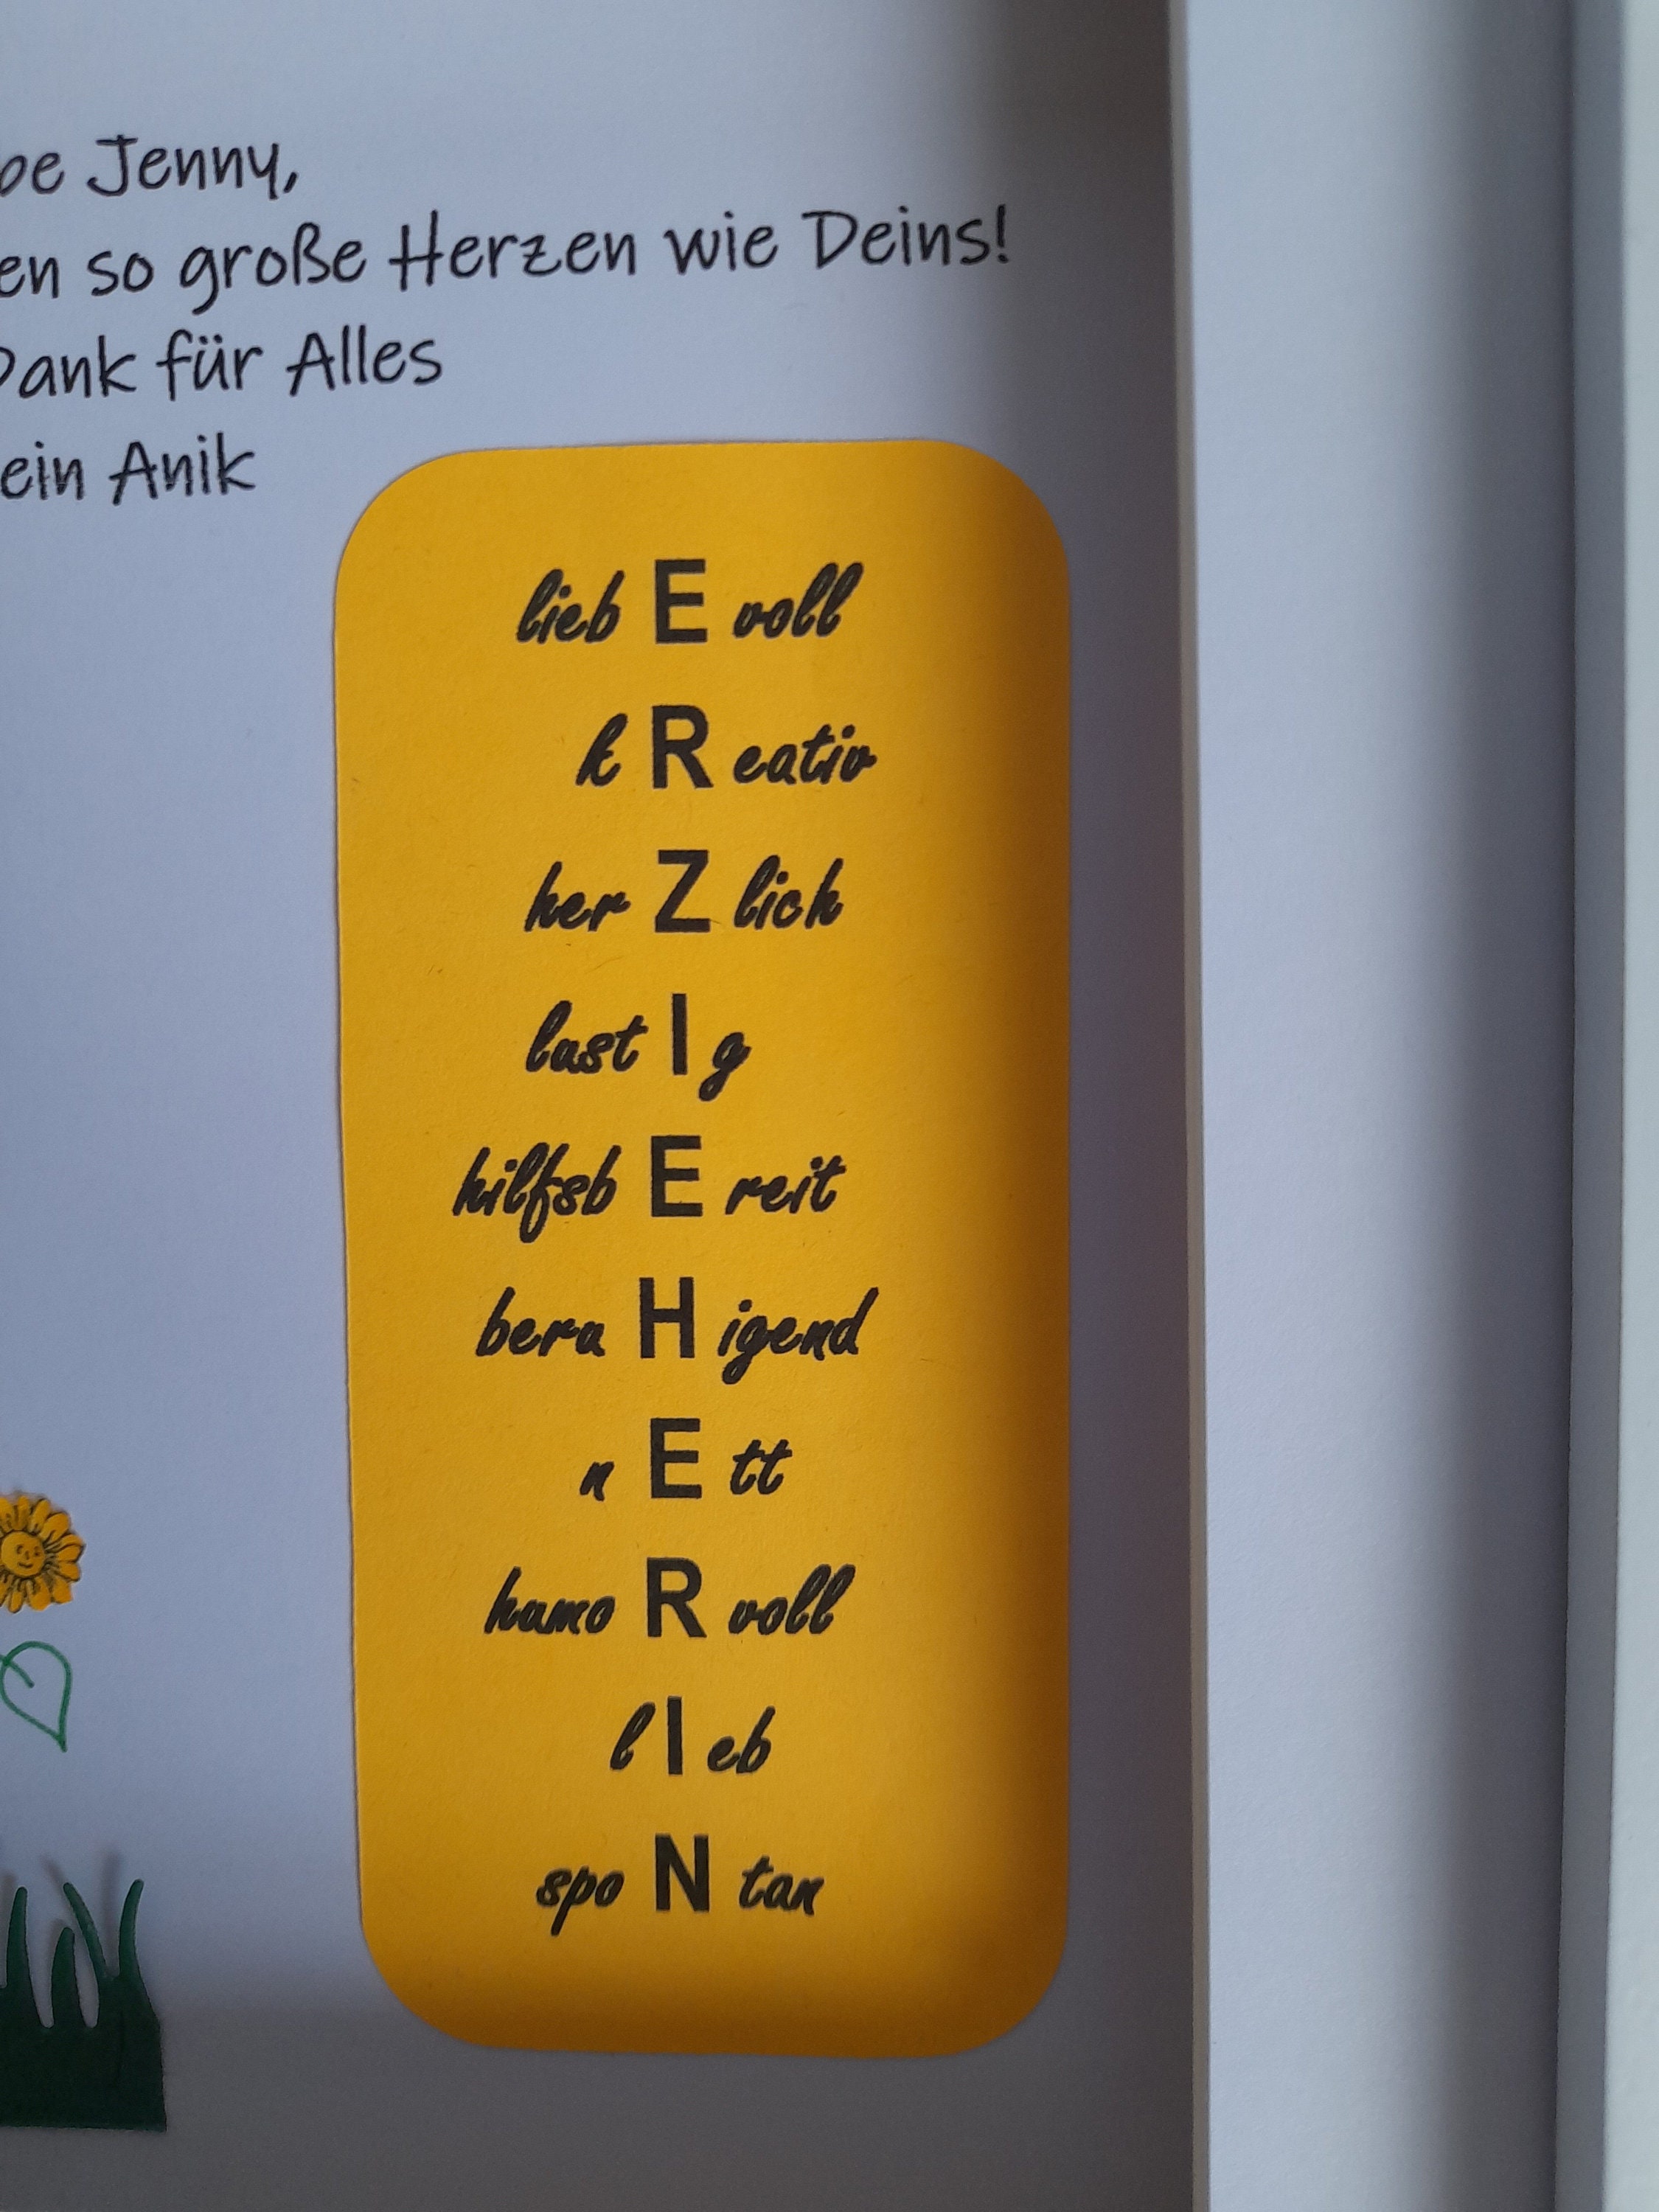 be Jenny,
en so große Herzen wie Deins!
Dank für Alles
ein Anik
lieb E voll
k R eativ
her Z lich
lust I g
hilfsb E reit
beru H igend
n E tt
humo R voll
l I eb
spo N tan